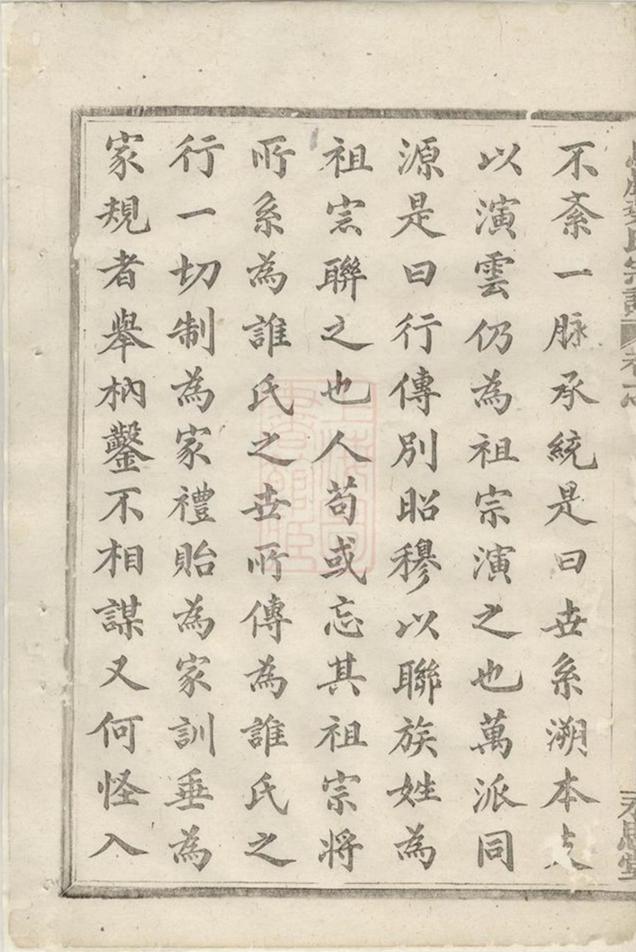 不紊一脉承統是曰世系溯本支
以演雲仍為祖宗演之也萬派同
源是曰行傳別昭穆以聯族姓為
祖宗聯之也人苟或忘其祖宗將
所系為誰氏之世所傳為誰氏之
行一切制為家禮貽為家訓垂為
家規者舉枘鑿不相謀又何怪入